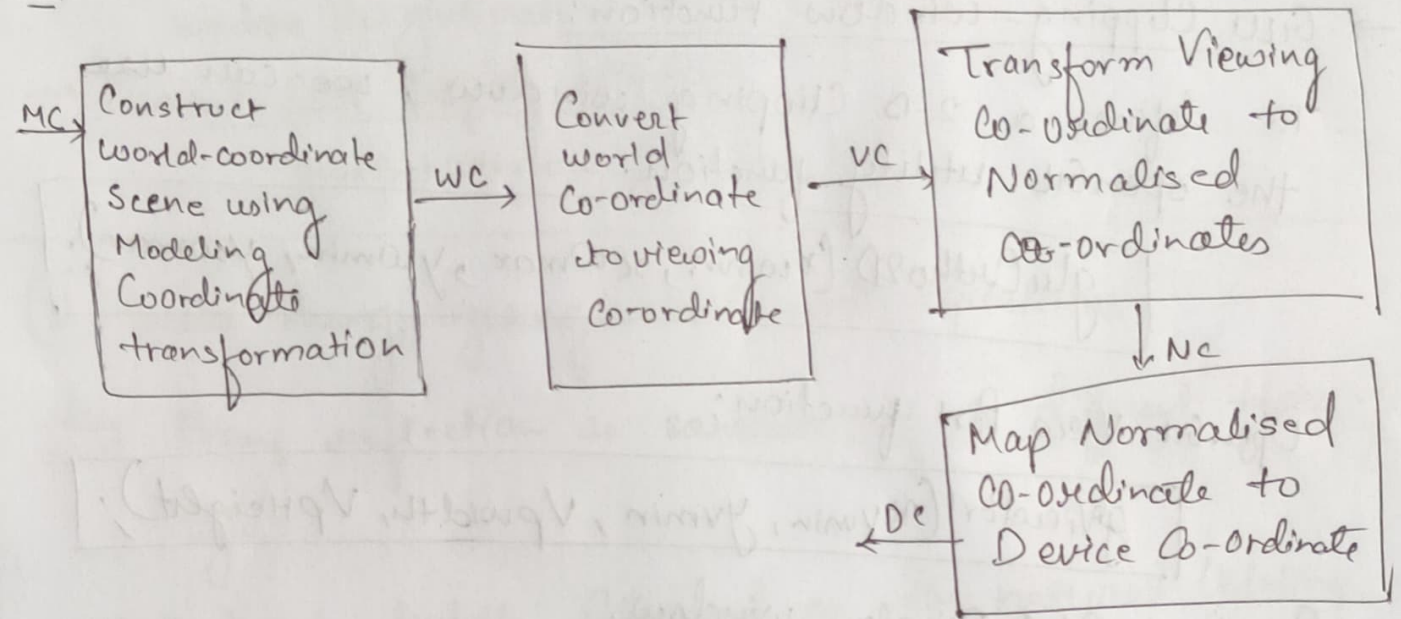 MC
Construct
world-coordinate
Scene using
Modeling
Coordinate
transformation
WC
Convert
world
Co-ordinate
to viewing
Co-ordinate
VC
Transform Viewing
Co-ordinate to
Normalised
Co-ordinates
NC
Map Normalised
Co-ordinate to
Device Co-ordinate
DC